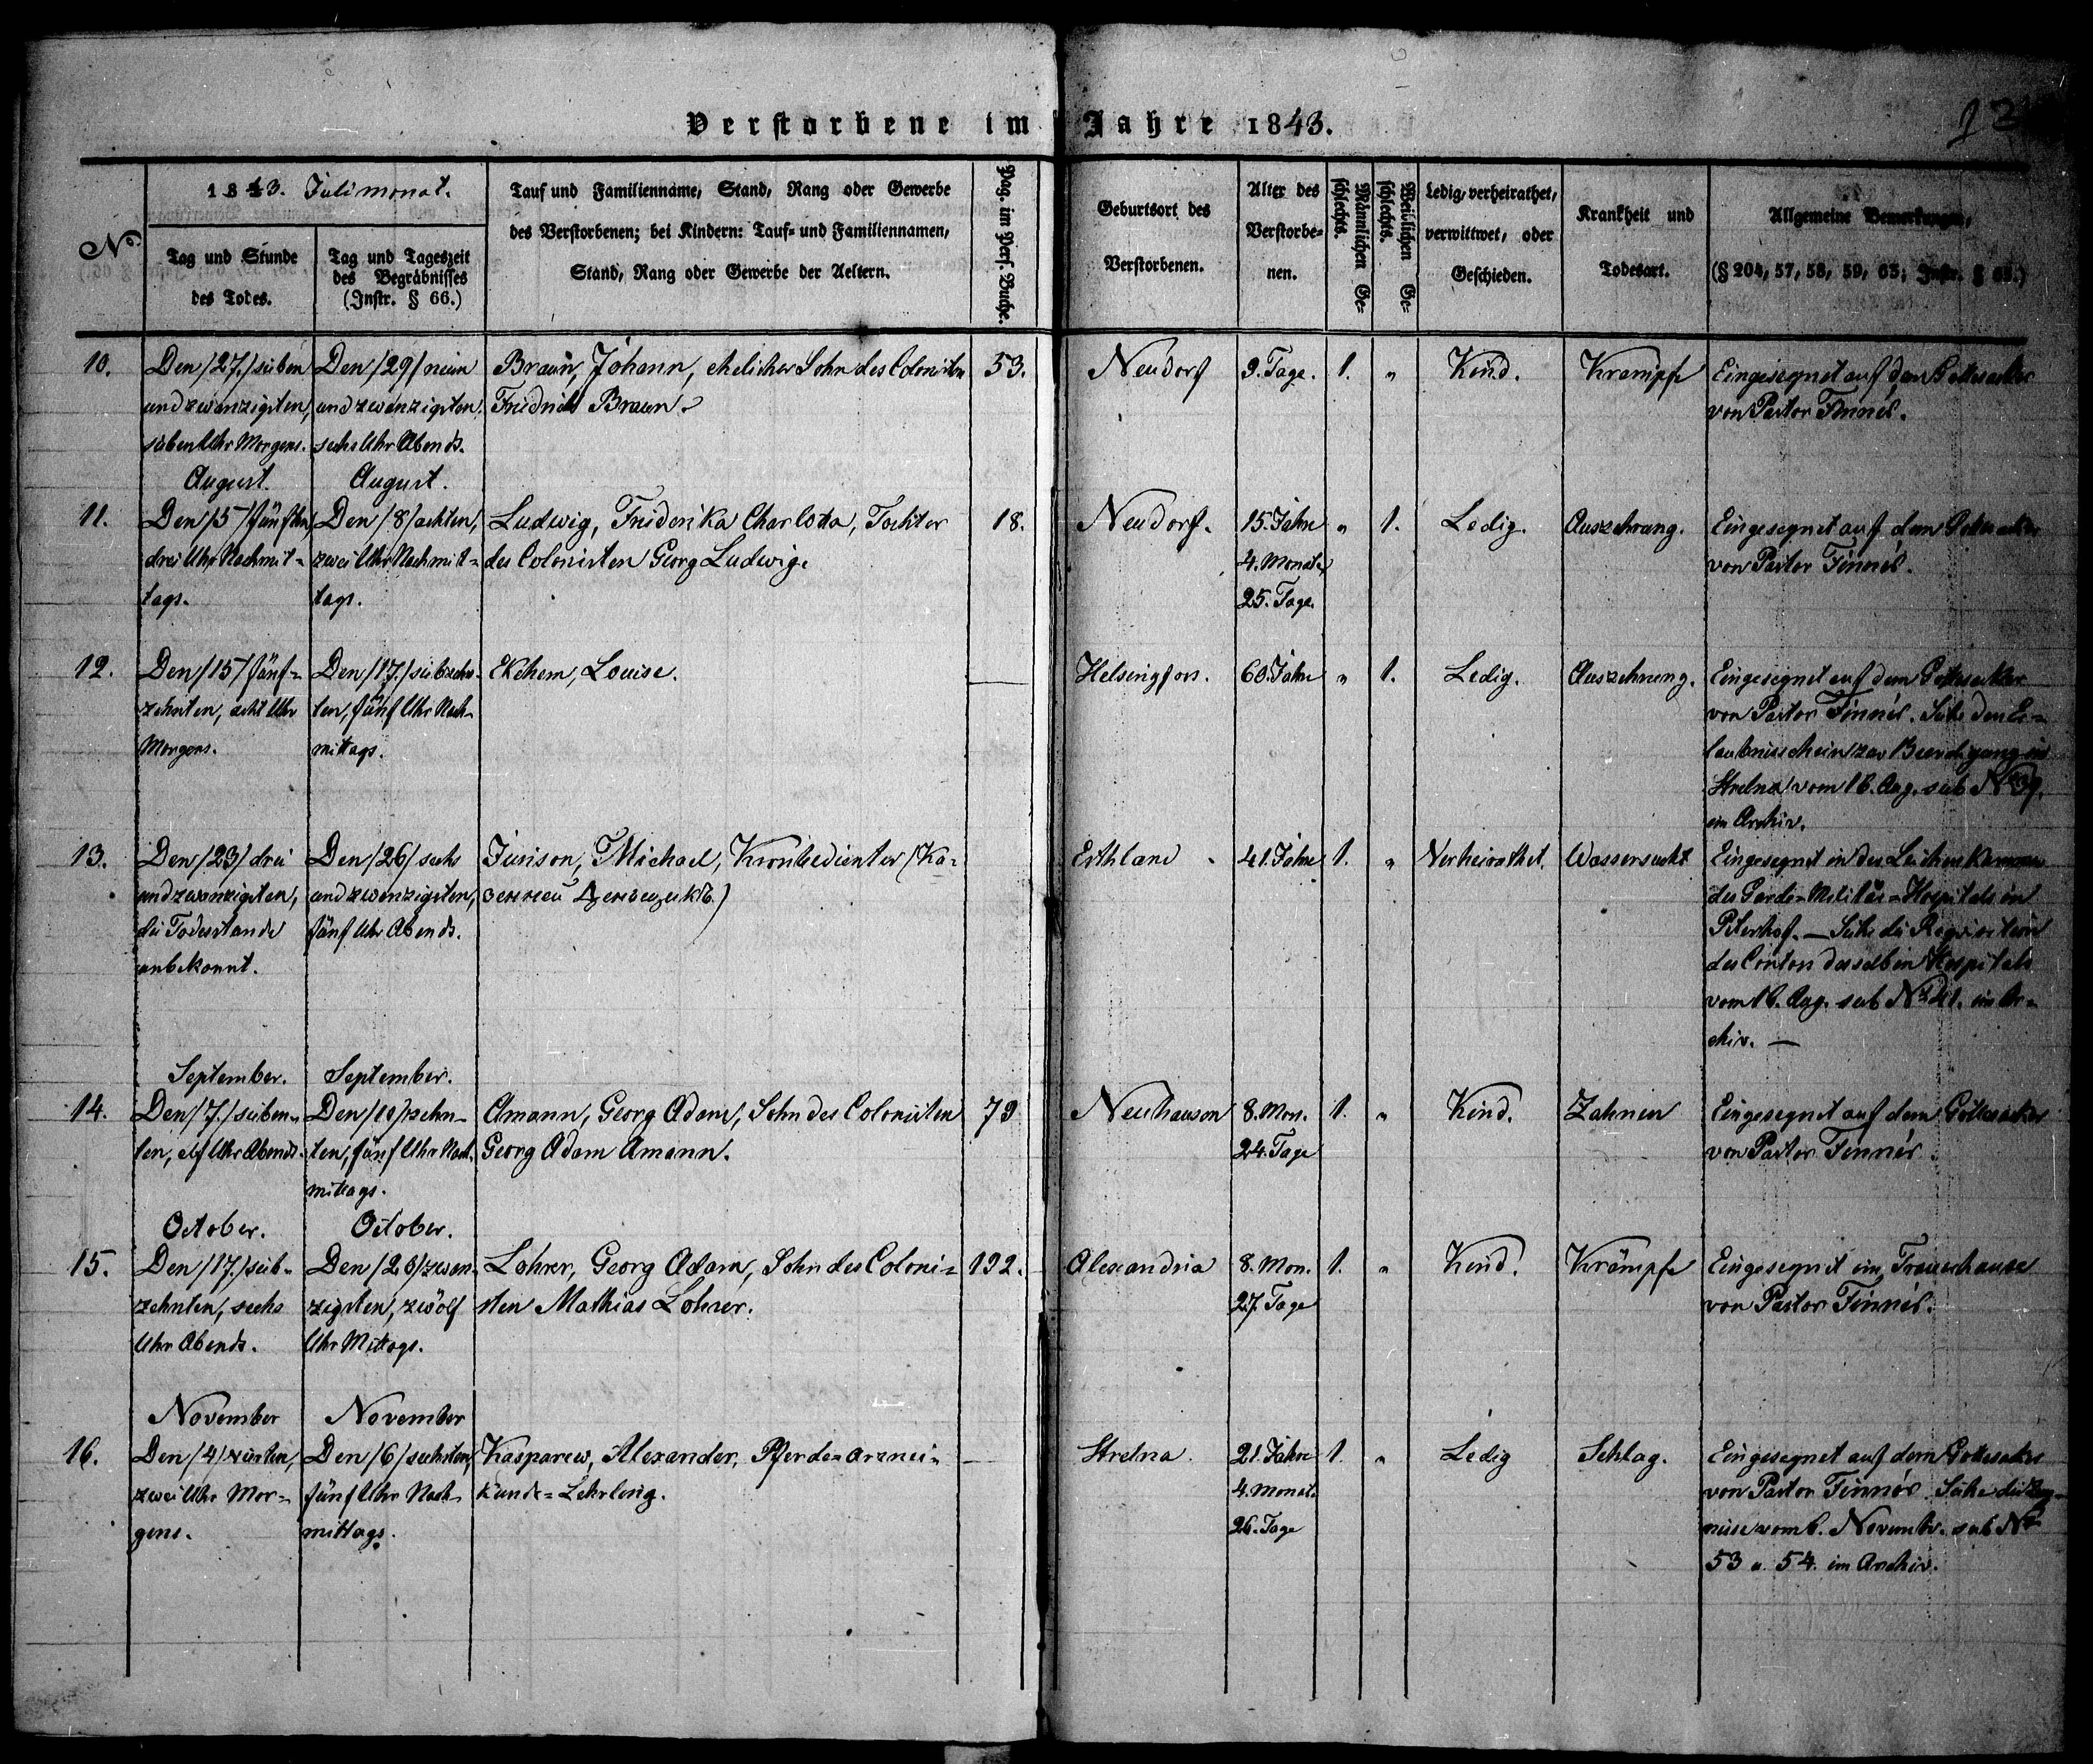 Verstorbene im Jahre 1843.
No.
1843. Julimonat.
Tag und Stunde
des Todes.
Tag und Tageszeit
des Begräbnisses
(Instr. § 66.)
Tauf und Familienname, Stand, Rang oder Gewerbe
des Verstorbenen; bei Kindern: Tauf- und Familiennamen,
Stand, Rang oder Gewerbe der Aeltern.
Pag. im Pers. Buche.
Geburtsort des
Verstorbenen.
Alter des
Verstorbe-
nen.
Männlichen Ge-
schlechts.
Weiblichen Ge-
schlechts.
Ledig, verheirathet,
verwittwet, oder
Geschieden.
Krankheit und
Todesart.
Allgemeine Bemerkungen,
(§ 204, 57, 58, 59, 63; Instr. §
10.
Den /27./ sieben
und zwanzigsten,
sieben Uhr Morgens.
Den /29/ neun
und zwanzigsten,
sechs Uhr Abends.
Braun, Johann, ehelicher Sohn des Colonisten
Friedrich Braun.
53.
Neudorf
9. Tage.
1.
"
Kind.
Krämpfe
Eingesegnet auf dem Gottesacker
von Pastor
August.
August.
11.
Den /5/ fünften,
drei Uhr Nachmit-
tags.
Den /8/ achten,
zwei Uhr Nachmit-
tags.
Ludwig, Friderika Charlotta, Tochter
des Colonisten Georg Ludwig.
18.
Neudorf.
15. Jahre
4. Monate,
25. Tage.
"
1.
Ledig.
Auszehrung.
Eingesegnet auf dem Gottesacker
von Pastor
12.
Den /15/ fünf-
zehnten, acht Uhr
Morgens.
Den /17./ siebzehn-
ten, fünf Uhr Nach-
mittags.
Ekehem, Louise.
—
Helsingfors.
60. Jahre
"
1.
Ledig.
Auszehrung.
Eingesegnet auf dem Gottesacker
von Pastor Siehe den Er-
laubnisschein zur Beerdigung in
Strelna vom 16. Aug. sub No 39.
im Archiv.
13.
Den /23/ drei
und zwanzigsten,
die Todesstunde
unbekannt.
Den /26/ sechs
und zwanzigsten,
fünf Uhr Abends.
Jurison, Michael, Kronbedienter (Ка-
зенный Денщикъ.)
Esthland
41. Jahre
1.
"
Verheirathet.
Wassersucht
Eingesegnet in der Leichenkammer
des Garde-Militär-Hospitals in
Peterhof. — Siehe die Requisition
des Contors desselben Hospitals
vom 16. Aug. sub No 41. im Ar-
chiv. —
September.
September.
14.
Den /7./ sieben-
ten, elf Uhr Abends.
Den /10/ zehn-
ten, fünf Uhr Nach-
mittags.
Amann, Georg Adam, Sohn des Colonisten
Georg Adam Amann.
79
Neuhausen
8. Mon.
24. Tage
1.
"
Kind.
Zahnen
Eingesegnet auf dem Gottesacker
von Pastor
October.
October.
15.
Den /17./ sieb-
zehnten, sechs
Uhr Abends.
Den /20/ zwan-
zigsten, zwölf
Uhr Mittags.
Lohrer, Georg Adam, Sohn des Coloni-
sten Mathias Lohrer.
192.
Alexandria
8. Mon.
27. Tage
1.
"
Kind.
Krämpfe
Eingesegnet im Trauerhause
von Pastor
November
November
16.
Den /4/ vierten,
zwei Uhr Mor-
gens.
Den /6/ sechsten,
fünf Uhr Nach-
mittags.
Kasparew, Alexander, Pferde-arznei-
kunde-Lehrling.
—
Strelna.
21. Jahre
4. Monat.
26. Tage
1.
"
Ledig
Schlag.
Eingesegnet auf dem Gottesacker
von Pastor Siehe die Zeug-
nisse vom 6. November. sub No
53 u. 54. im Archiv.